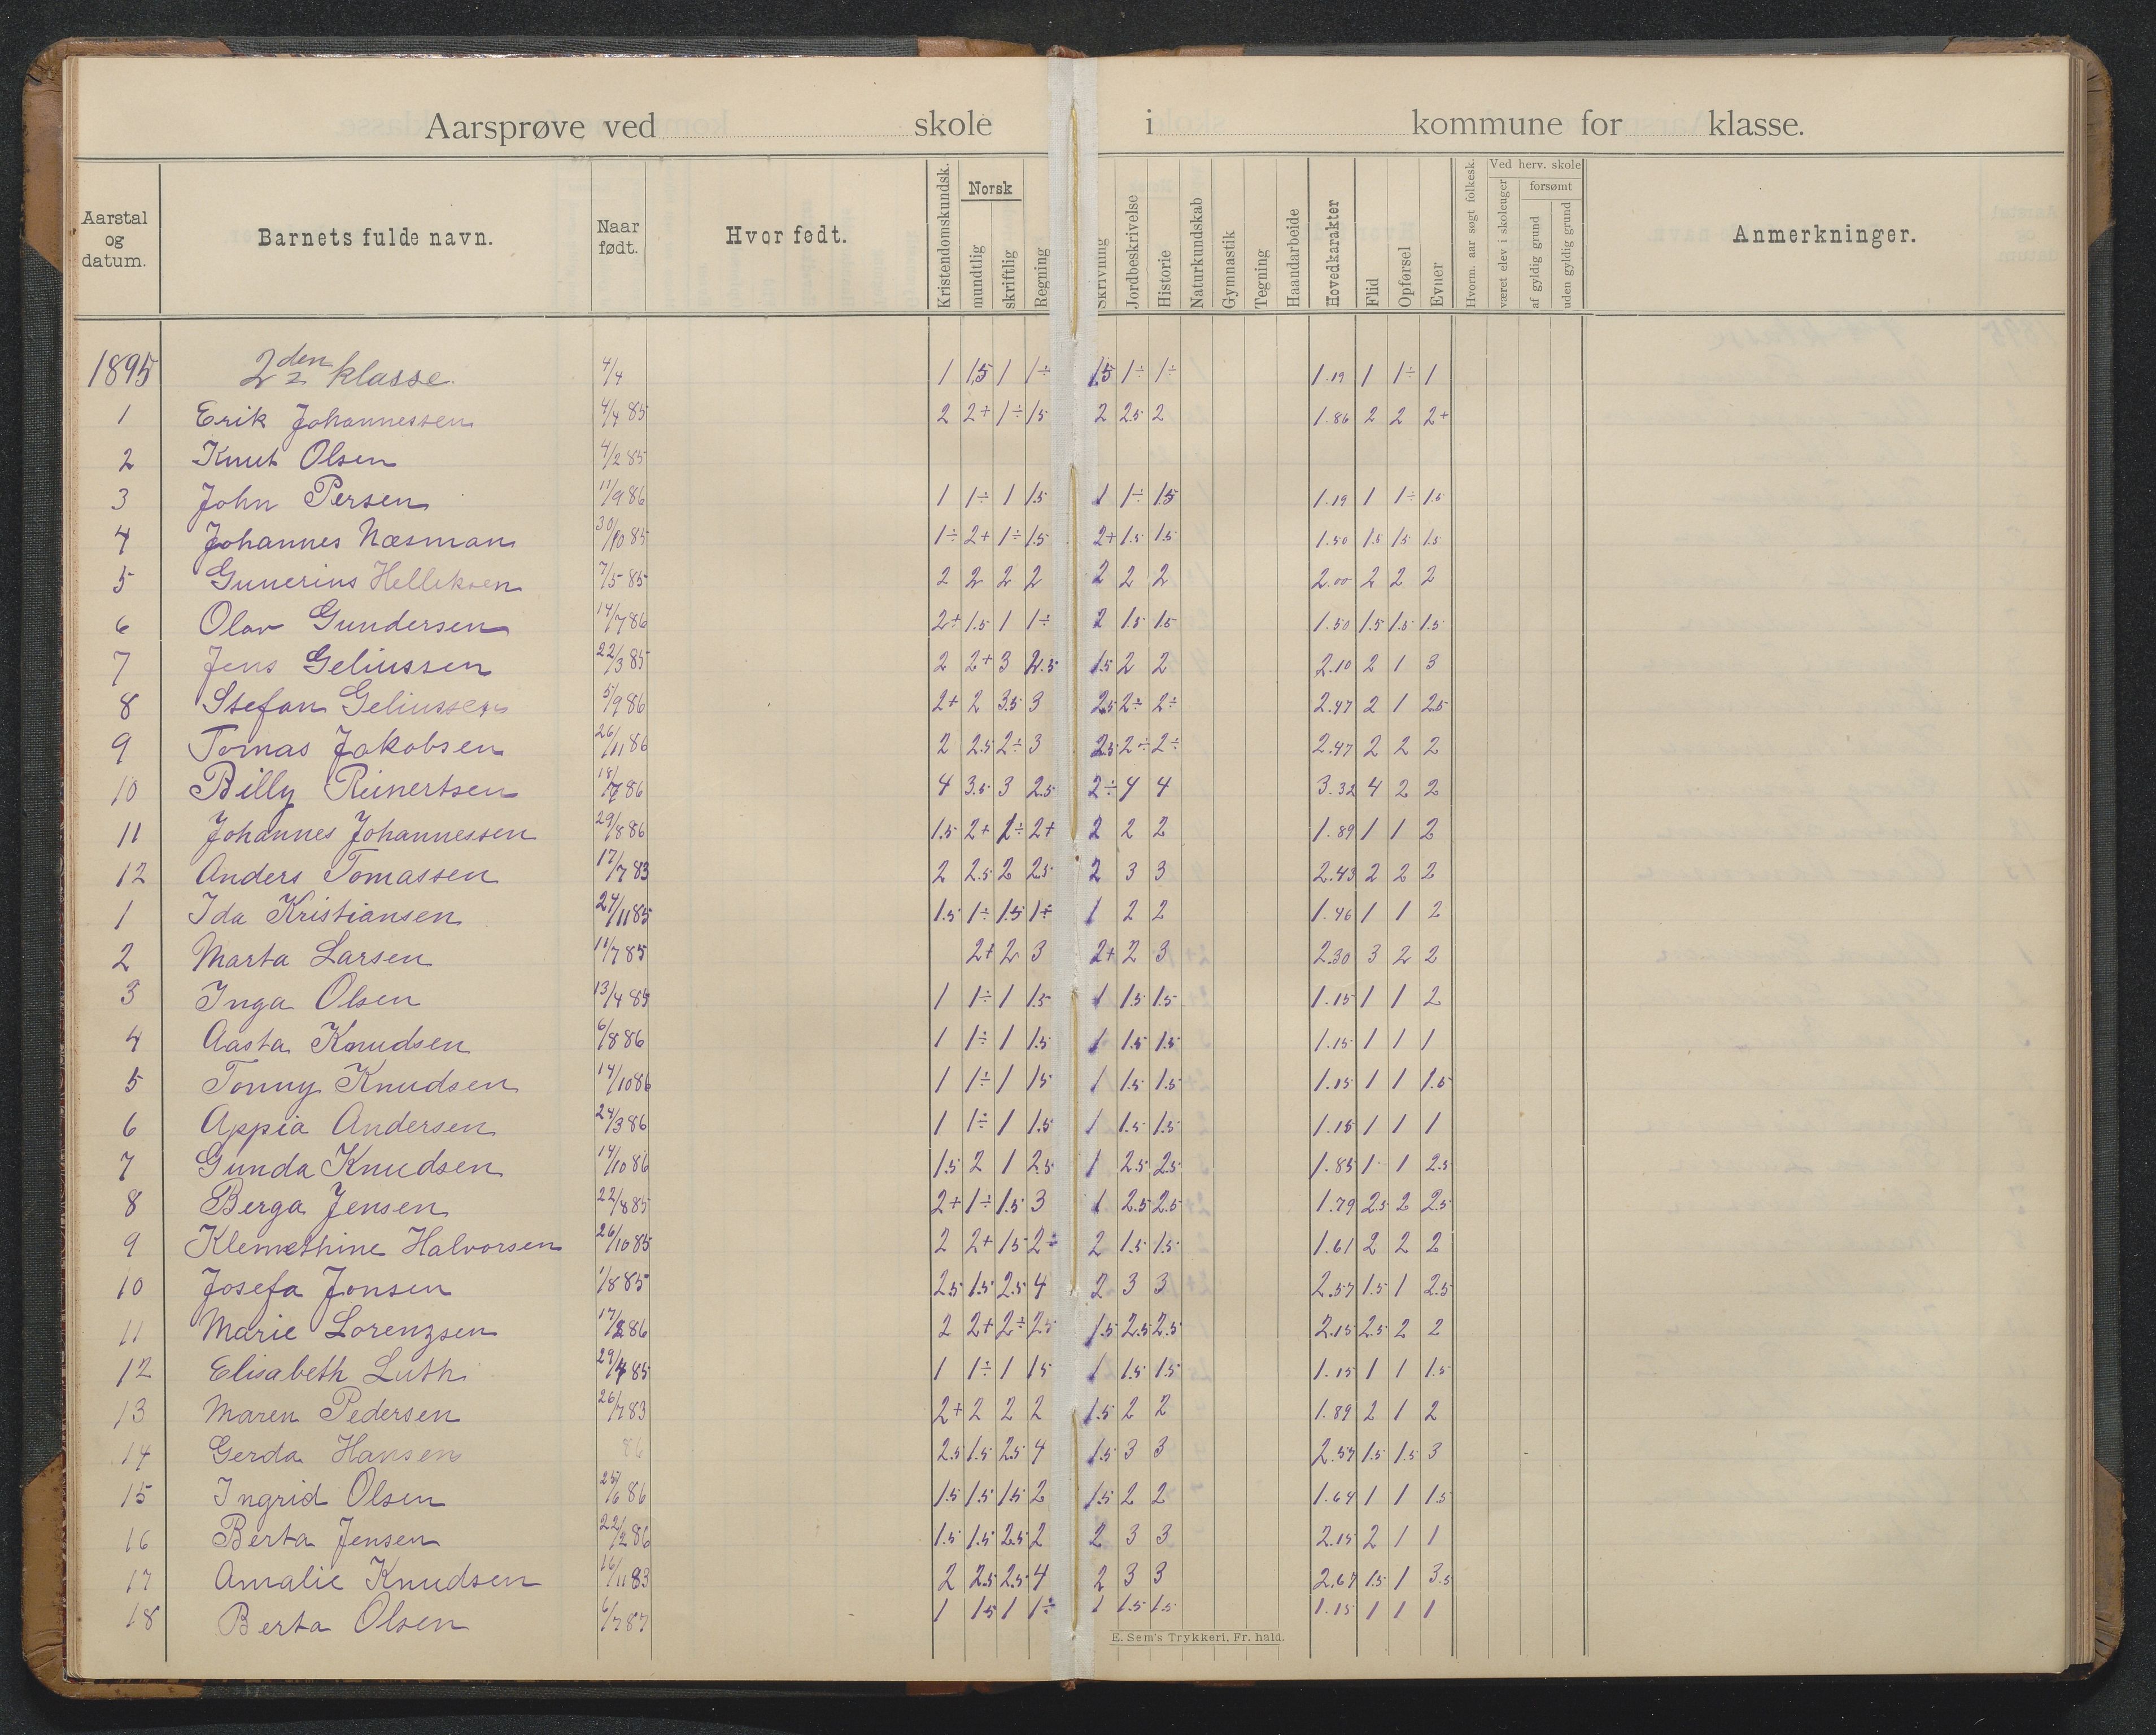 Aarsprøve ved skole i kommune for klasse.
Aarstal og datum. Barnets fulde navn. Naar født. Hvor født. Kristendomskundsk. Norsk mundtlig skriftlig Regning Skrivning Jordbeskrivelse Historie Naturkundskab Gymnastik Tegning Haandarbeide Hovedkarakter Flid Opførsel Evner Hvorm. aar søgt folkesk. Ved herv. skole været elev i skoleuger forsømt af gyldig grund uden gyldig grund Anmerkninger.
1895 2den klasse. 4/4 1 1.5 1 1÷ 1.5 1÷ 1÷ 1.19 1 1÷ 1
1 Erik Johannessen 4/4 85 2 2+ 1÷ 1.5 2 2.5 2 1.86 2 2 2+
2 Knut Olsen 4/2 85
3 John Persen 11/9 86 1 1÷ 1 1.5 1 1÷ 1.5 1.19 1 1÷ 1.5
4 Johannes Næsman 30/10 85 1÷ 2+ 1÷ 1.5 2+ 1.5 1.5 1.50 1.5 1.5 1.5
5 Gunerius Helleksen 7/5 85 2 2 2 2 2 2 2 2.00 2 2 2
6 Olav Gundersen 14/7 86 2+ 1.5 1 1÷ 2 1.5 1.5 1.50 1.5 1.5 1.5
7 Jens Geliussen 22/3 85 2 2+ 3 2.5 1.5 2 2 2.10 2 1 3
8 Stefan Geliussen 5/9 86 2+ 2 3.5 3 2.5 2÷ 2÷ 2.47 2 1 2.5
9 Tomas Jakobsen 26/11 86 2 2.5 2÷ 3 2.5 2÷ 2÷ 2.47 2 2 2
10 Billy Reinertsen 18/7 86 4 3.5 3 2.5 2÷ 4 4 3.32 4 2 2
11 Johannes Johannessen 29/8 86 1.5 2+ 1÷ 2+ 2 2 2 1.89 1 1 2
12 Anders Tomassen 17/7 83 2 2.5 2 2.5 2 3 3 2.43 2 2 2
1 Ida Kristiansen 24/11 85 1.5 1÷ 1.5 1÷ 1 2 2 1.46 1 1 2
2 Marta Larsen 11/7 85 2+ 2 3 2+ 2 3 2.30 3 2 2
3 Inga Olsen 13/4 85 1 1÷ 1 1.5 1 1.5 1.5 1.15 1 1 2
4 Aasta Knudsen 6/8 86 1 1÷ 1 1.5 1 1.5 1.5 1.15 1 1 1
5 Tonny Knudsen 14/10 86 1 1÷ 1 1.5 1 1.5 1.5 1.15 1 1 1.5
6 Appia Andersen 24/3 86 1 1÷ 1 1.5 1 1.5 1.5 1.15 1 1 1
7 Gunda Knudsen 14/10 86 1.5 2 1 2.5 1 2.5 2.5 1.85 1 1 2.5
8 Berga Jensen 22/8 85 2+ 1÷ 1.5 3 1 2.5 2.5 1.79 2.5 2 2.5
9 Klemethine Halvorsen 26/10 85 2 2+ 1.5 2÷ 2 1.5 1.5 1.61 2 2 2
10 Josefa Jonsen 1/8 85 2.5 1.5 2.5 4 2 3 3 2.57 1.5 1 2.5
11 Marie Lorenzsen 17/2 86 2 2+ 2÷ 2.5 1.5 2.5 2.5 2.15 2.5 2 2
12 Elisabeth Luth 29/4 85 1 1÷ 1 1.5 1 1.5 1.5 1.15 1 1 1.5
13 Maren Pedersen 26/7 83 2+ 2 2 2 1.5 2 2 1.89 2 1 2
14 Gerda Hansen 86 2.5 1.5 2.5 4 1.5 3 3 2.57 1.5 1.5 3
15 Ingrid Olsen 25/6 86 1.5 1.5 1.5 2 1.5 2 2 1.64 1 1 1.5
16 Berta Jensen 22/2 86 1.5 1.5 2.5 2 2 3 3 2.15 2 1 1
17 Amalie Knudsen 16/11 83 2 2.5 2.5 4 2 3 3 2.67 1.5 1 3.5
18 Berta Olsen 6/7 87 1 1.5 1 1÷ 1 1.5 1.5 1.15 1 1 1
E. Sem's Trykkeri, Fr. hald.